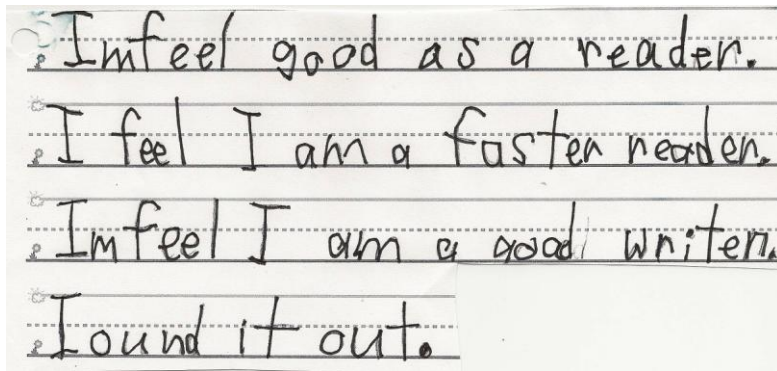 Imfeel good as a reader.
I feel I am a faster reader.
Imfeel I am a good writer.
Iound it out.